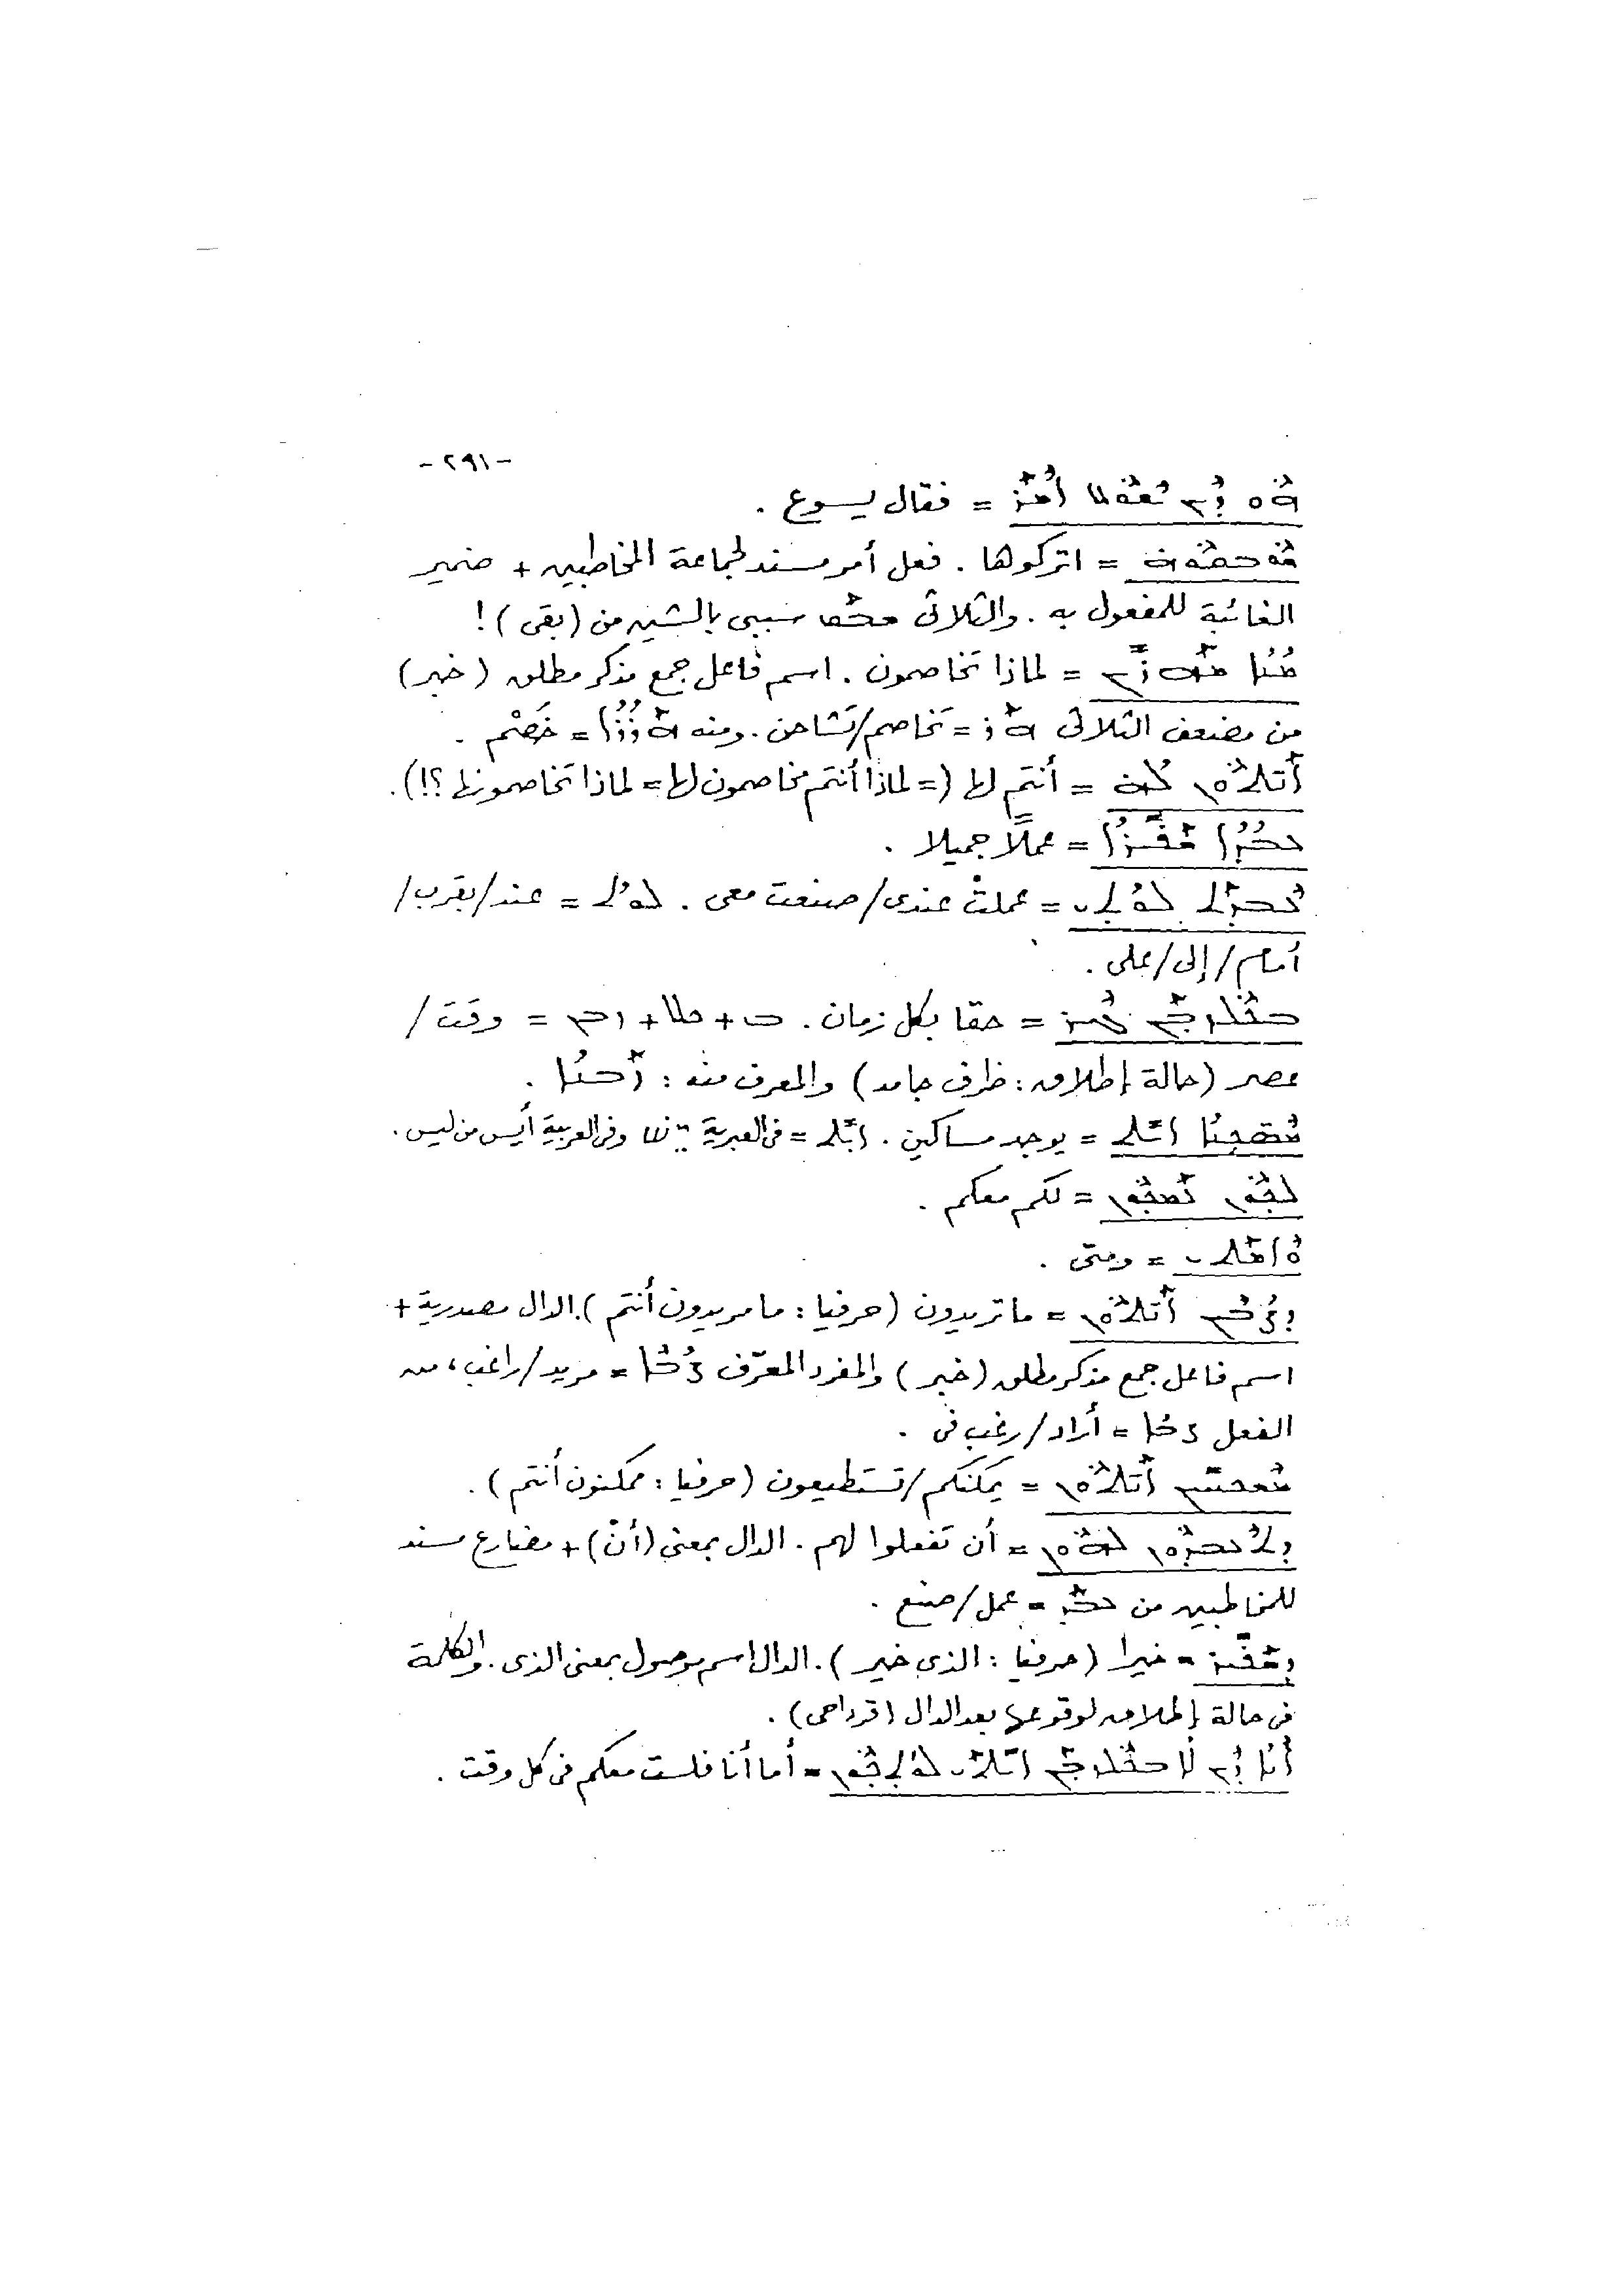 -٢٩١-
ܗܘ ܕܝܢ ܝܫܘܥ ܐܡܪ = فقال يسوع .
ܫܘܒܩܘܗ = اتركوها . فعل أمر مسند لجماعة المخاطبين + ضمير
الغائبة للمفعول به . والثلاثى ܫܒܩ سببى بالشين من (بقى) !
ܡܢܐ ܡܗܪܝܢ = لماذا تخاصمون . اسم فاعل جمع مذكر مطلق (خبر)
من مضعف الثلاثى ܗܪ = تخاصم/تشاحن . ومنه ܗܪܪܐ = خَصْم .
ܐܢܬܘܢ ܠܗ = أنتم لها (= لماذا أنتم مخاصمون لها = لماذا تخاصمونها ؟!) .
ܥܒܕܐ ܫܦܝܪܐ = عملًا جميلا .
ܥܒܕܬ ܠܘܬܝ = عملتْ عندى/صنعت معى . ܠܘܬ = عند/بقرب/
أمام/إلى/على .
ܒܟܠܙܒܢ ܓܝܪ = حقا بكل زمان . ܒ + ܟܠ + ܙܒܢ = وقت/
عصر (حالة إطلاق : ظرف جامد) والمعرف منه : ܙܒܢܐ .
ܡܣܟܢܐ ܐܝܬ = يوجد مساكين . ܐܝܬ = فى العبرية יֵשׁ وفى العربية أيس من ليس .
ܠܟܘܢ ܥܡܟܘܢ = لكم معكم .
ܘܐܡܬܝ = ومتى .
ܕܨܒܝܢ ܐܢܬܘܢ = ما تريدون (حرفيا : ما مريدون أنتم) . الدال مصدرية +
اسم فاعل جمع مذكر مطلق (خبر) والمفرد المعرّف ܨܒܐ = مريد/راغب ، من
الفعل ܨܒܐ = أراد/رغب فى .
ܡܫܟܚܝܢ ܐܢܬܘܢ = يمكنكم/تستطيعون (حرفيا : ممكنون أنتم) .
ܕܬܥܒܕܘܢ ܠܗܘܢ = أن تفعلوا لهم . الدال بمعنى (أنْ) + مضارع مسند
للمخاطبين من ܥܒܕ = عمل/صنع .
ܕܫܦܝܪ = خيرا (حرفيا : الذى خير) . الدال اسم موصول بمعنى الذى . والكلمة
فى حالة إطلاق لوقوعها بعد الدال (قرداحى) .
ܐܢܐ ܕܝܢ ܠܐ ܒܟܠܙܒܢ ܐܝܬܝ ܠܘܬܟܘܢ = أما أنا فلست معكم فى كل وقت .